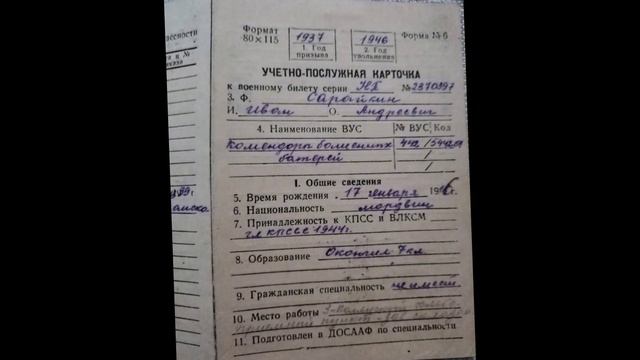 Формат 80×115
1937
1. Год призыва
1946
2. Год увольнения
Форма № 6
УЧЕТНО-ПОСЛУЖНАЯ КАРТОЧКА
к военному билету серии № 2370897
3. Ф. Сарайкин
И. Иван О. Андреевич
4. Наименование ВУС № ВУС Код
батарей
I. Общие сведения
5. Время рождения 17 января
6. Национальность мордвин
7. Принадлежность к КПСС и ВЛКСМ
чл КПСС с 1944 г.
8. Образование Окончил 7 кл
9. Гражданская специальность не имеет
10. Место работы
11. Подготовлен в ДОСААФ по специальности